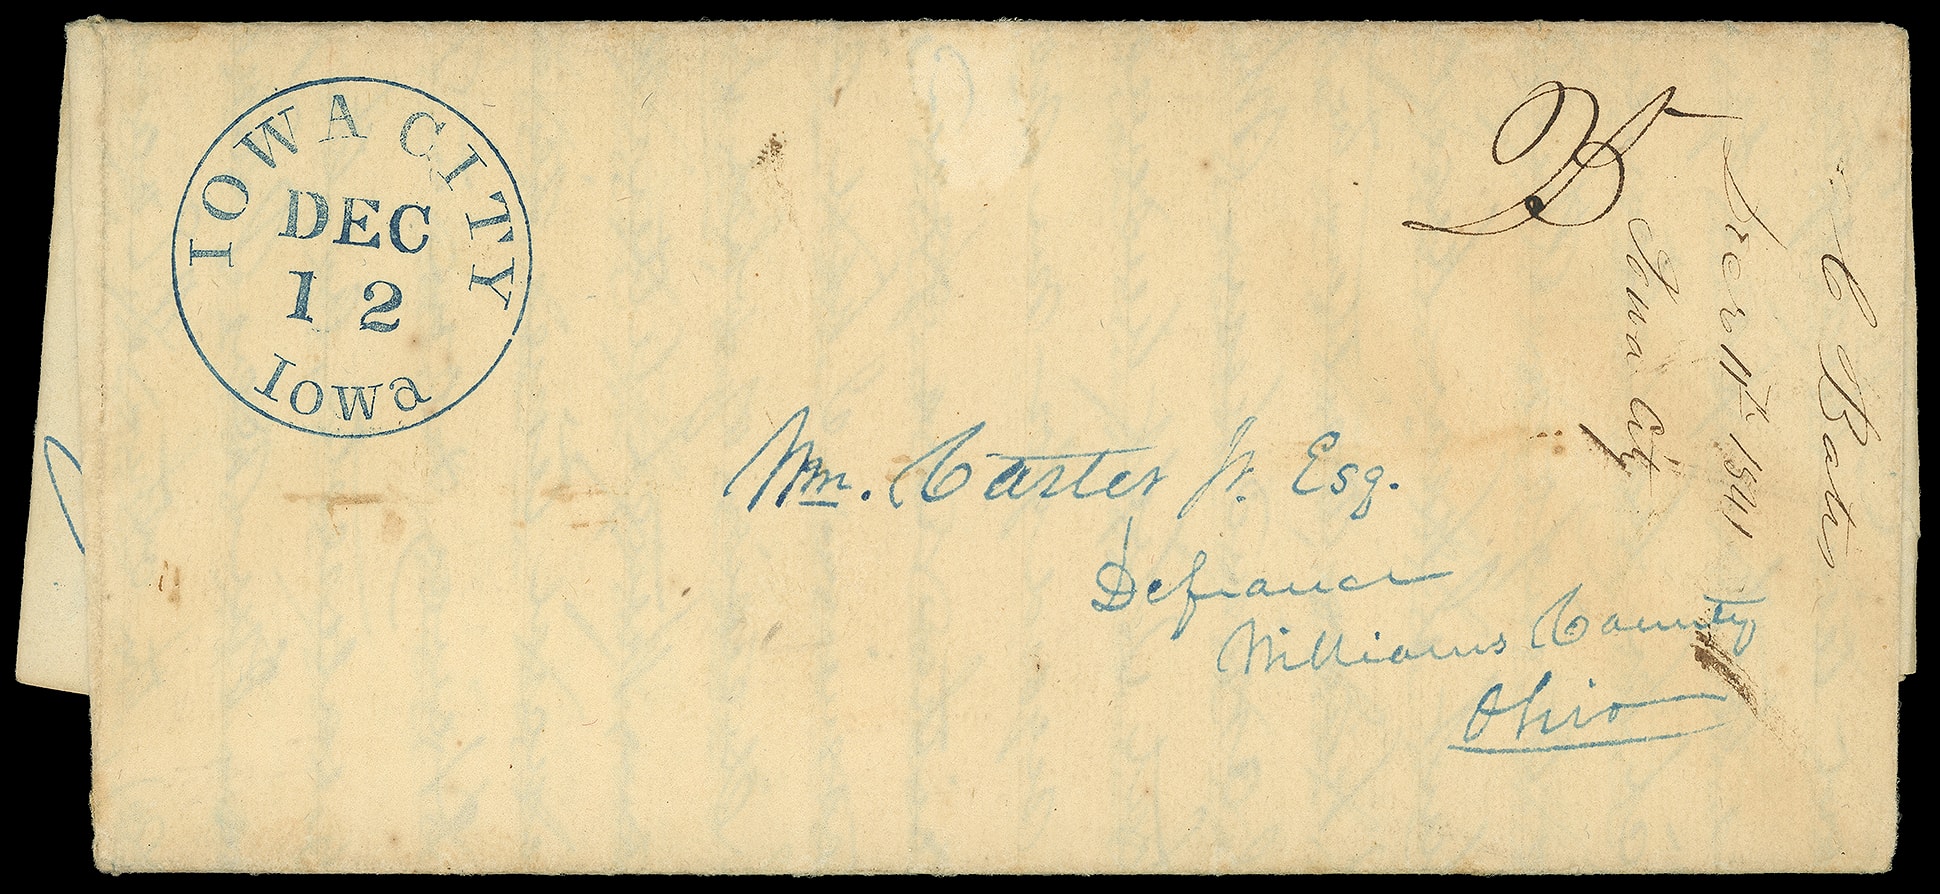 IOWA CITY
DEC
12
Iowa
Wm. Carter Jr. Esq.
Defiance
Williams County
Ohio
C Bates
Decr 11th 1841
Iowa City